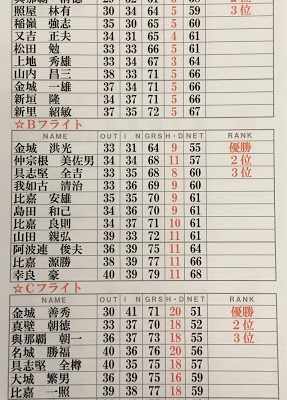 照屋 林有 30 34 64 5 59 3位
稲嶺 強志 35 30 65 5 60
又吉 正夫 34 31 65 4 61
松田 勉 33 33 66 5 61
上地 秀雄 33 34 67 3 64
山内 昌三 38 33 71 5 66
金城 一雄 37 34 71 5 66
新垣 隆 34 37 71 5 66
新里 紹敏 37 35 72 5 67
☆Bフライト
NAME OUT I N GRS H・D NET RANK
金城 洪光 33 31 64 9 55 優勝
仲宗根 美佐男 34 34 68 11 57 2位
具志堅 全吉 33 35 68 8 60 3位
我如古 清治 33 36 69 9 60
比嘉 安雄 35 35 70 9 61
島田 和己 34 36 70 9 61
比嘉 良則 34 37 71 10 61
山田 親弘 39 33 72 11 61
阿波連 俊夫 36 39 75 11 64
比嘉 源勝 38 39 77 11 66
幸良 豪 40 39 79 11 68
☆Cフライト
NAME OUT I N GRS H・D NET RANK
金城 善秀 30 41 71 20 51 優勝
真壁 朝徳 33 37 70 18 52 2位
與那覇 朝一 36 37 73 18 55 3位
名城 勝福 40 36 76 20 56
具志堅 全樽 40 35 75 18 57
大城 繁男 36 39 75 16 59
比嘉 一照 39 38 77 18 59